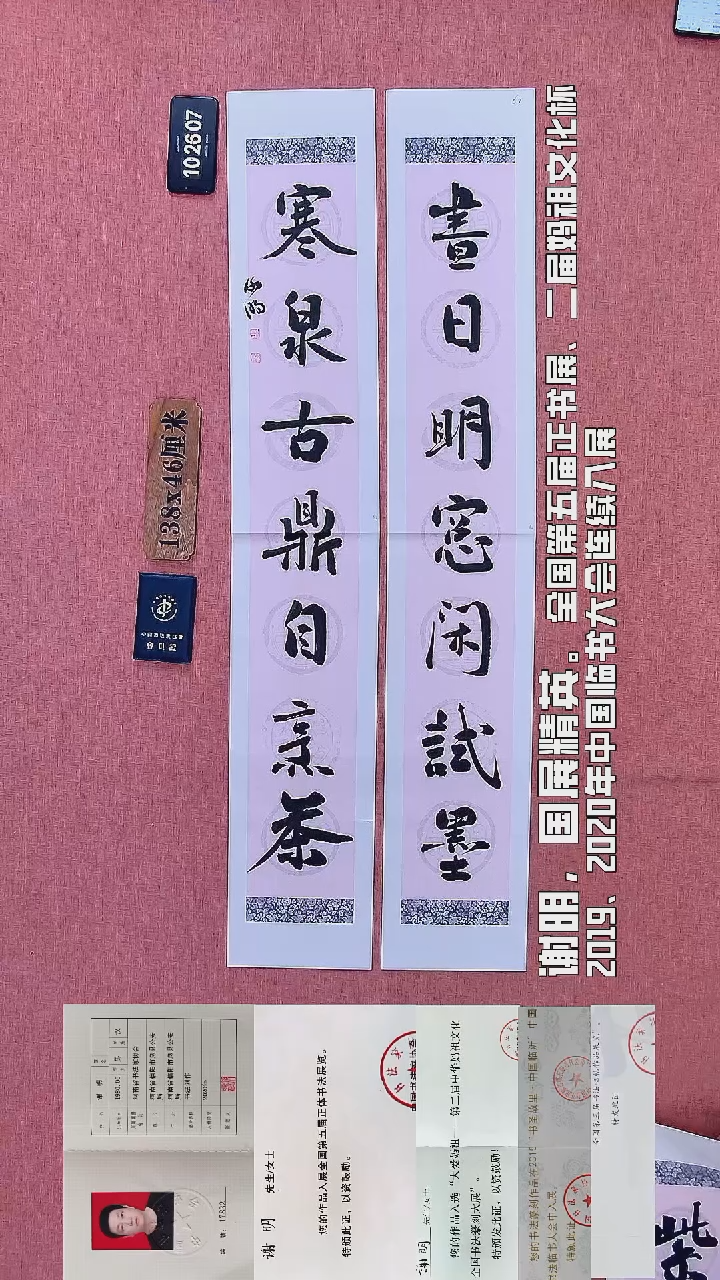 晝日明窓闲試墨
寒泉古鼎自烹茶
谢明
102607
138x46厘米
谢明，国展精英。全国第五届正书展、二届妈祖文化杯
2019、2020年中国临书大会连续入展
谢明 先生/女士
您的作品入展全国第五届正体书法展览。
特颁此证，以资鼓励。
谢明
您的作品入选“大爱妈祖——第二届中华妈祖文化
全国书法篆刻大展”。
特颁发此证，以资鼓励！
紫